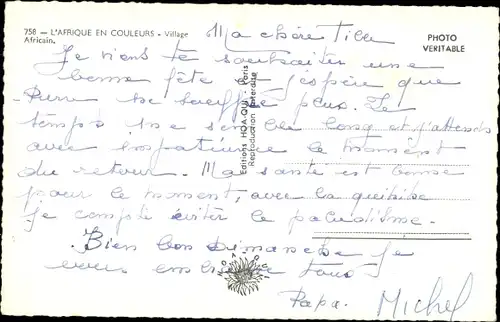 758 — L'AFRIQUE EN COULEURS - Village
Africain.
PHOTO
VERITABLE
Ma chère
Je viens te souhaiter une
bonne fête. J'espère que
Pierre ne souffre plus. Le
temps me semble long et j'attends
avec impatience le moment
du retour. Ma santé est bonne
pour le moment, avec la
je compte éviter le paludisme.
Bien bon Dimanche je
vous embrasse tous
Papa. Michel
Editions HOA-QUI - Paris
Reproduction interdite